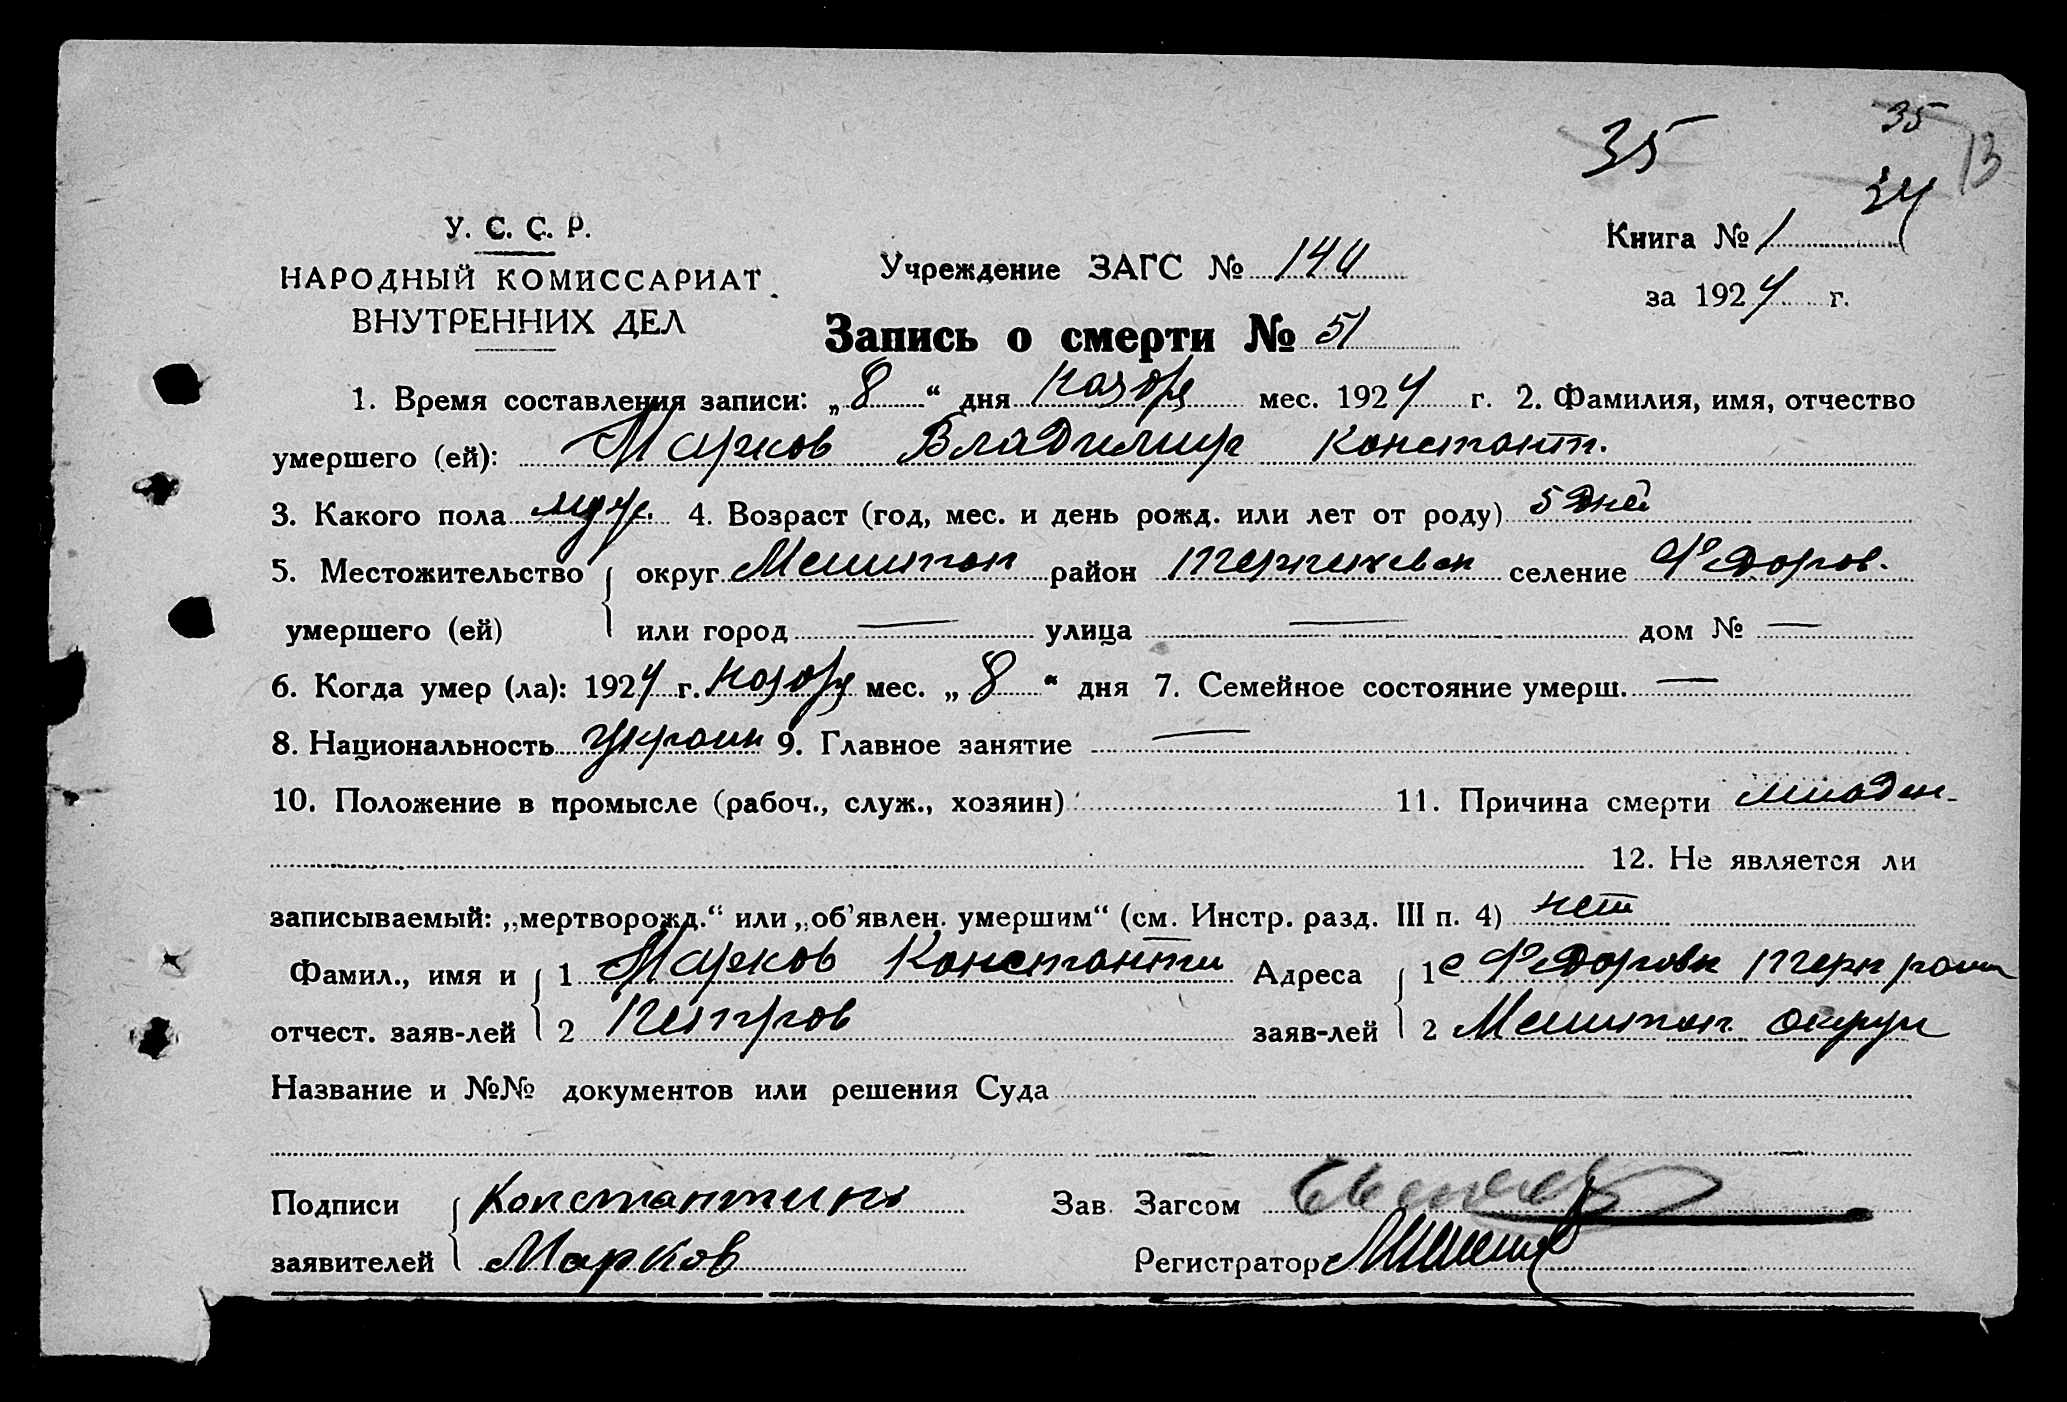 35 35 13
34
У. С. С. Р.
НАРОДНЫЙ КОМИССАРИАТ
ВНУТРЕННИХ ДЕЛ
Учреждение ЗАГС № 140
Книга № 1
за 1924 г.
Запись о смерти № 51
1. Время составления записи: „8“ дня ноября мес. 1924 г. 2. Фамилия, имя, отчество
умершего (ей): Марков Владимир Константин.
3. Какого пола муж. 4. Возраст (год, мес. и день рожд. или лет от роду) 5 дней
5. Местожительство округ Мелитоп район селение Федоров.
умершего (ей) или город — улица — дом № —
6. Когда умер (ла): 1924 г. ноября мес. „8“ дня 7. Семейное состояние умерш. —
8. Национальность украин 9. Главное занятие —
10. Положение в промысле (рабоч., служ., хозяин) 11. Причина смерти младен.
12. Не является ли
записываемый: „мертворожд.“ или „об’явлен. умершим“ (см. Инстр. разд. III п. 4) нет
Фамил., имя и 1 Марков Константи Адреса 1 с Федоровк Терн район
отчест. заяв-лей 2 Петров заяв-лей 2 Мелитоп. округ
Название и №№ документов или решения Суда
Подписи Константин Зав. Загсом
заявителей Марков Регистратор